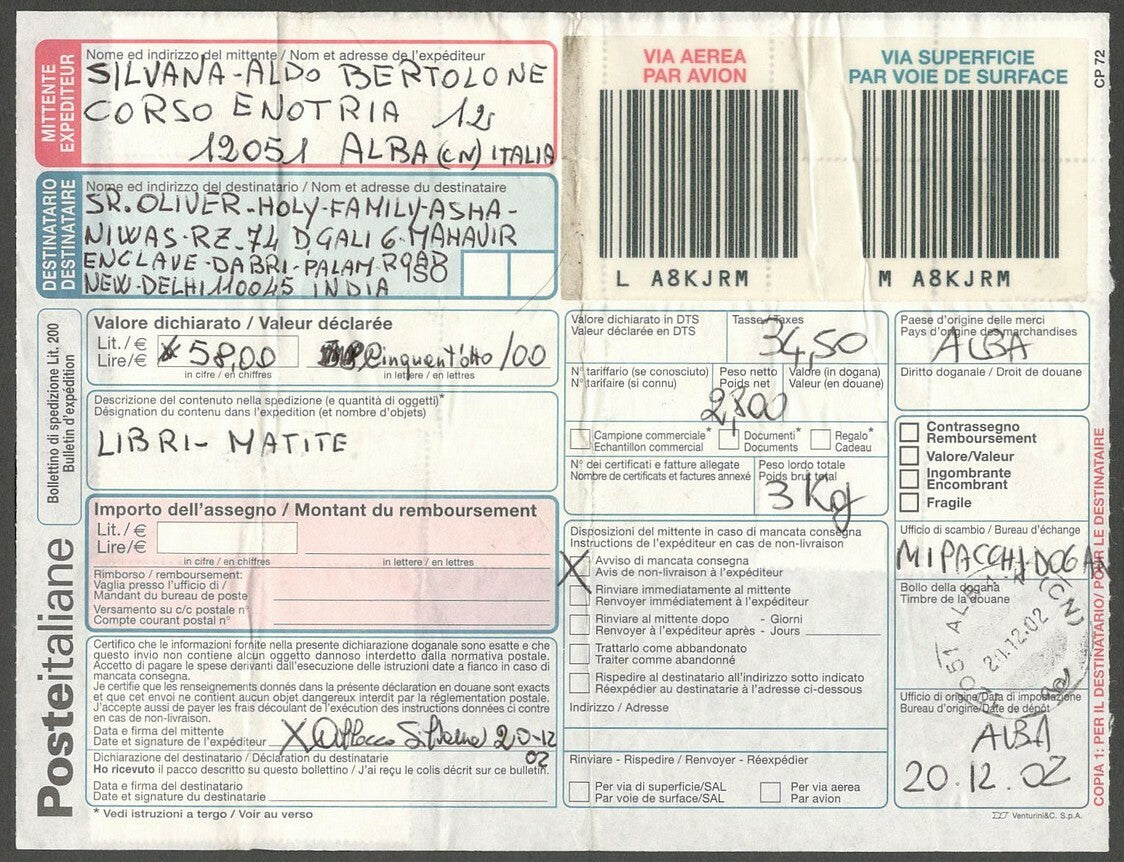 MITTENTE
EXPEDITEUR
Nome ed indirizzo del mittente / Nom et adresse de l'expéditeur
SILVANA-ALDO BERTOLONE
CORSO ENOTRIA 12
12051 ALBA (CN) ITALIA
DESTINATARIO
DESTINATAIRE
Nome ed indirizzo del destinatario / Nom et adresse du destinataire
SR. OLIVER-HOLY-FAMILY-ASHA-
NIWAS-RZ-74 DGALI 6-MAHAVIR
ENCLAVE-DABRI-PALAM-ROAD
ISO
NEW-DELHI 110045 INDIA
VIA AEREA
PAR AVION
L A8KJRM
VIA SUPERFICIE
PAR VOIE DE SURFACE
M A8KJRM
CP 72
Bollettino di spedizione Lit. 200
Bulletin d'expédition
Posteitaliane
Valore dichiarato / Valeur déclarée
Lit. / €
Lire/€
58,00
Cinquantotto /00
in cifre / en chiffres
in lettere / en lettres
Descrizione del contenuto nella spedizione (e quantità di oggetti)*
Désignation du contenu dans l'expedition (et nombre d'objets)
LIBRI- MATITE
Importo dell'assegno / Montant du remboursement
Lit. / €
Lire/€
in cifre / en chiffres
in lettere / en lettres
Rimborso / remboursement:
Vaglia presso l'ufficio di /
Mandant du bureau de poste
Versamento su c/c postale n°
Compte courant postal n°
Certifico che le informazioni fornite nella presente dichiarazione doganale sono esatte e che
questo invio non contiene alcun oggetto dannoso interdetto dalla normativa postale.
Accetto di pagare le spese derivanti dall'esecuzione delle istruzioni date a fianco in caso di
mancata consegna.
Je certifie que les renseignements donnés dans la présente déclaration en douane sont exacts
et que cet envoi ne contient aucun objet dangereux interdit par la réglementation postale.
J'accepte aussi de payer les frais découlant de l'exécution des instructions données ci contre
en cas de non-livraison.
Data e firma del mittente
Date et signature de l'expéditeur
X
20-12
02
Dichiarazione del destinatario / Déclaration du destinataire
Ho ricevuto il pacco descritto su questo bollettino / J'ai reçu le colis décrit sur ce bulletin.
Data e firma del destinatario
Date et signature du destinataire
* Vedi istruzioni a tergo / Voir au verso
Valore dichiarato in DTS
Valeur déclarée en DTS
Tasse / Taxes
34,50
N° tariffario (se conosciuto)
N° tarifaire (si connu)
Peso netto
Poids net
2,800
Valore (in dogana)
Valeur (en douane)
Campione commerciale*
Echantillon commercial
Documenti*
Documents
Regalo*
Cadeau
N° dei certificati e fatture allegate
Nombre de certificats et factures annexé
Peso lordo totale
Poids brut total
3 Kg
Disposizioni del mittente in caso di mancata consegna
Instructions de l'expéditeur en cas de non-livraison
X
Avviso di mancata consegna
Avis de non-livraison à l'expéditeur
Rinviare immediatamente al mittente
Renvoyer immédiatement à l'expéditeur
Rinviare al mittente dopo - Giorni
Renvoyer à l'expéditeur après - Jours
Trattarlo come abbandonato
Traiter comme abandonné
Rispedire al destinatario all'indirizzo sotto indicato
Réexpédier au destinatarie à l'adresse ci-dessous
Indirizzo / Adresse
Rinviare - Rispedire / Renvoyer - Réexpédier
Per via di superficie/SAL
Par voie de surface/SAL
Per via aerea
Par avion
Paese d'origine delle merci
Pays d'origine des marchandises
ALBA
Diritto doganale / Droit de douane
Contrassegno
Remboursement
Valore/Valeur
Ingombrante
Encombrant
Fragile
Ufficio di scambio / Bureau d'échange
MI PACCHI DOGAN
Bollo della dogana
Timbre de la douane
12051 ALBA (CN)
Ufficio di origine/Data di impostazione
Bureau d'origine/Date de dépôt
ALBA
20.12.02
COPIA 1: PER IL DESTINATARIO/ POUR LE DESTINATAIRE
Venturini&C. S.p.A.